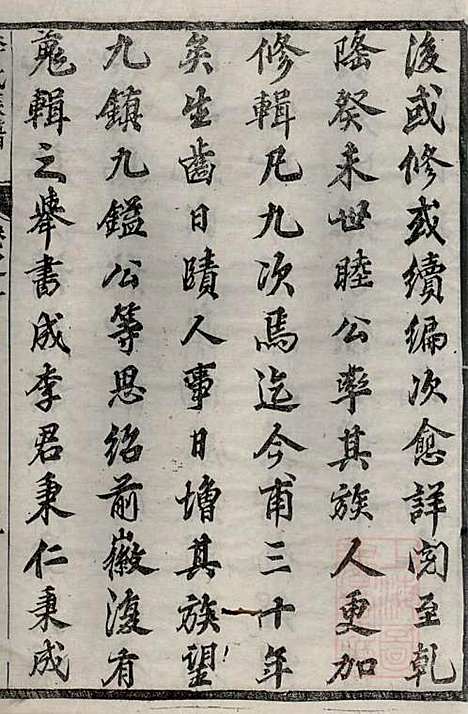 後或修或續編次愈詳閱至乾
隆癸未世睦公率其族人更加
修輯凡九次焉迄今甫三十年
矣生齒日賾人事日增其族望
九鎮九鎰公等思紹前徽復有
蒐輯之舉書成李君秉仁秉成